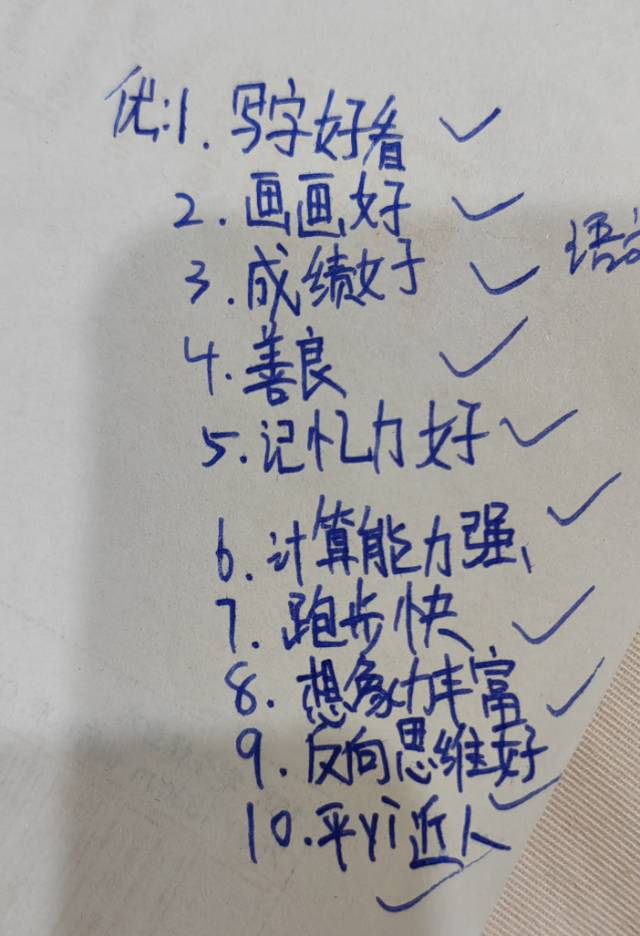 优:1. 写字好看 ✓
2. 画画好 ✓
3. 成绩好 ✓
语
4. 善良 ✓
5. 记忆力好 ✓
6. 计算能力强 ✓
7. 跑步快 ✓
8. 想象力丰富 ✓
9. 反向思维好 ✓
10. 平yi近人 ✓